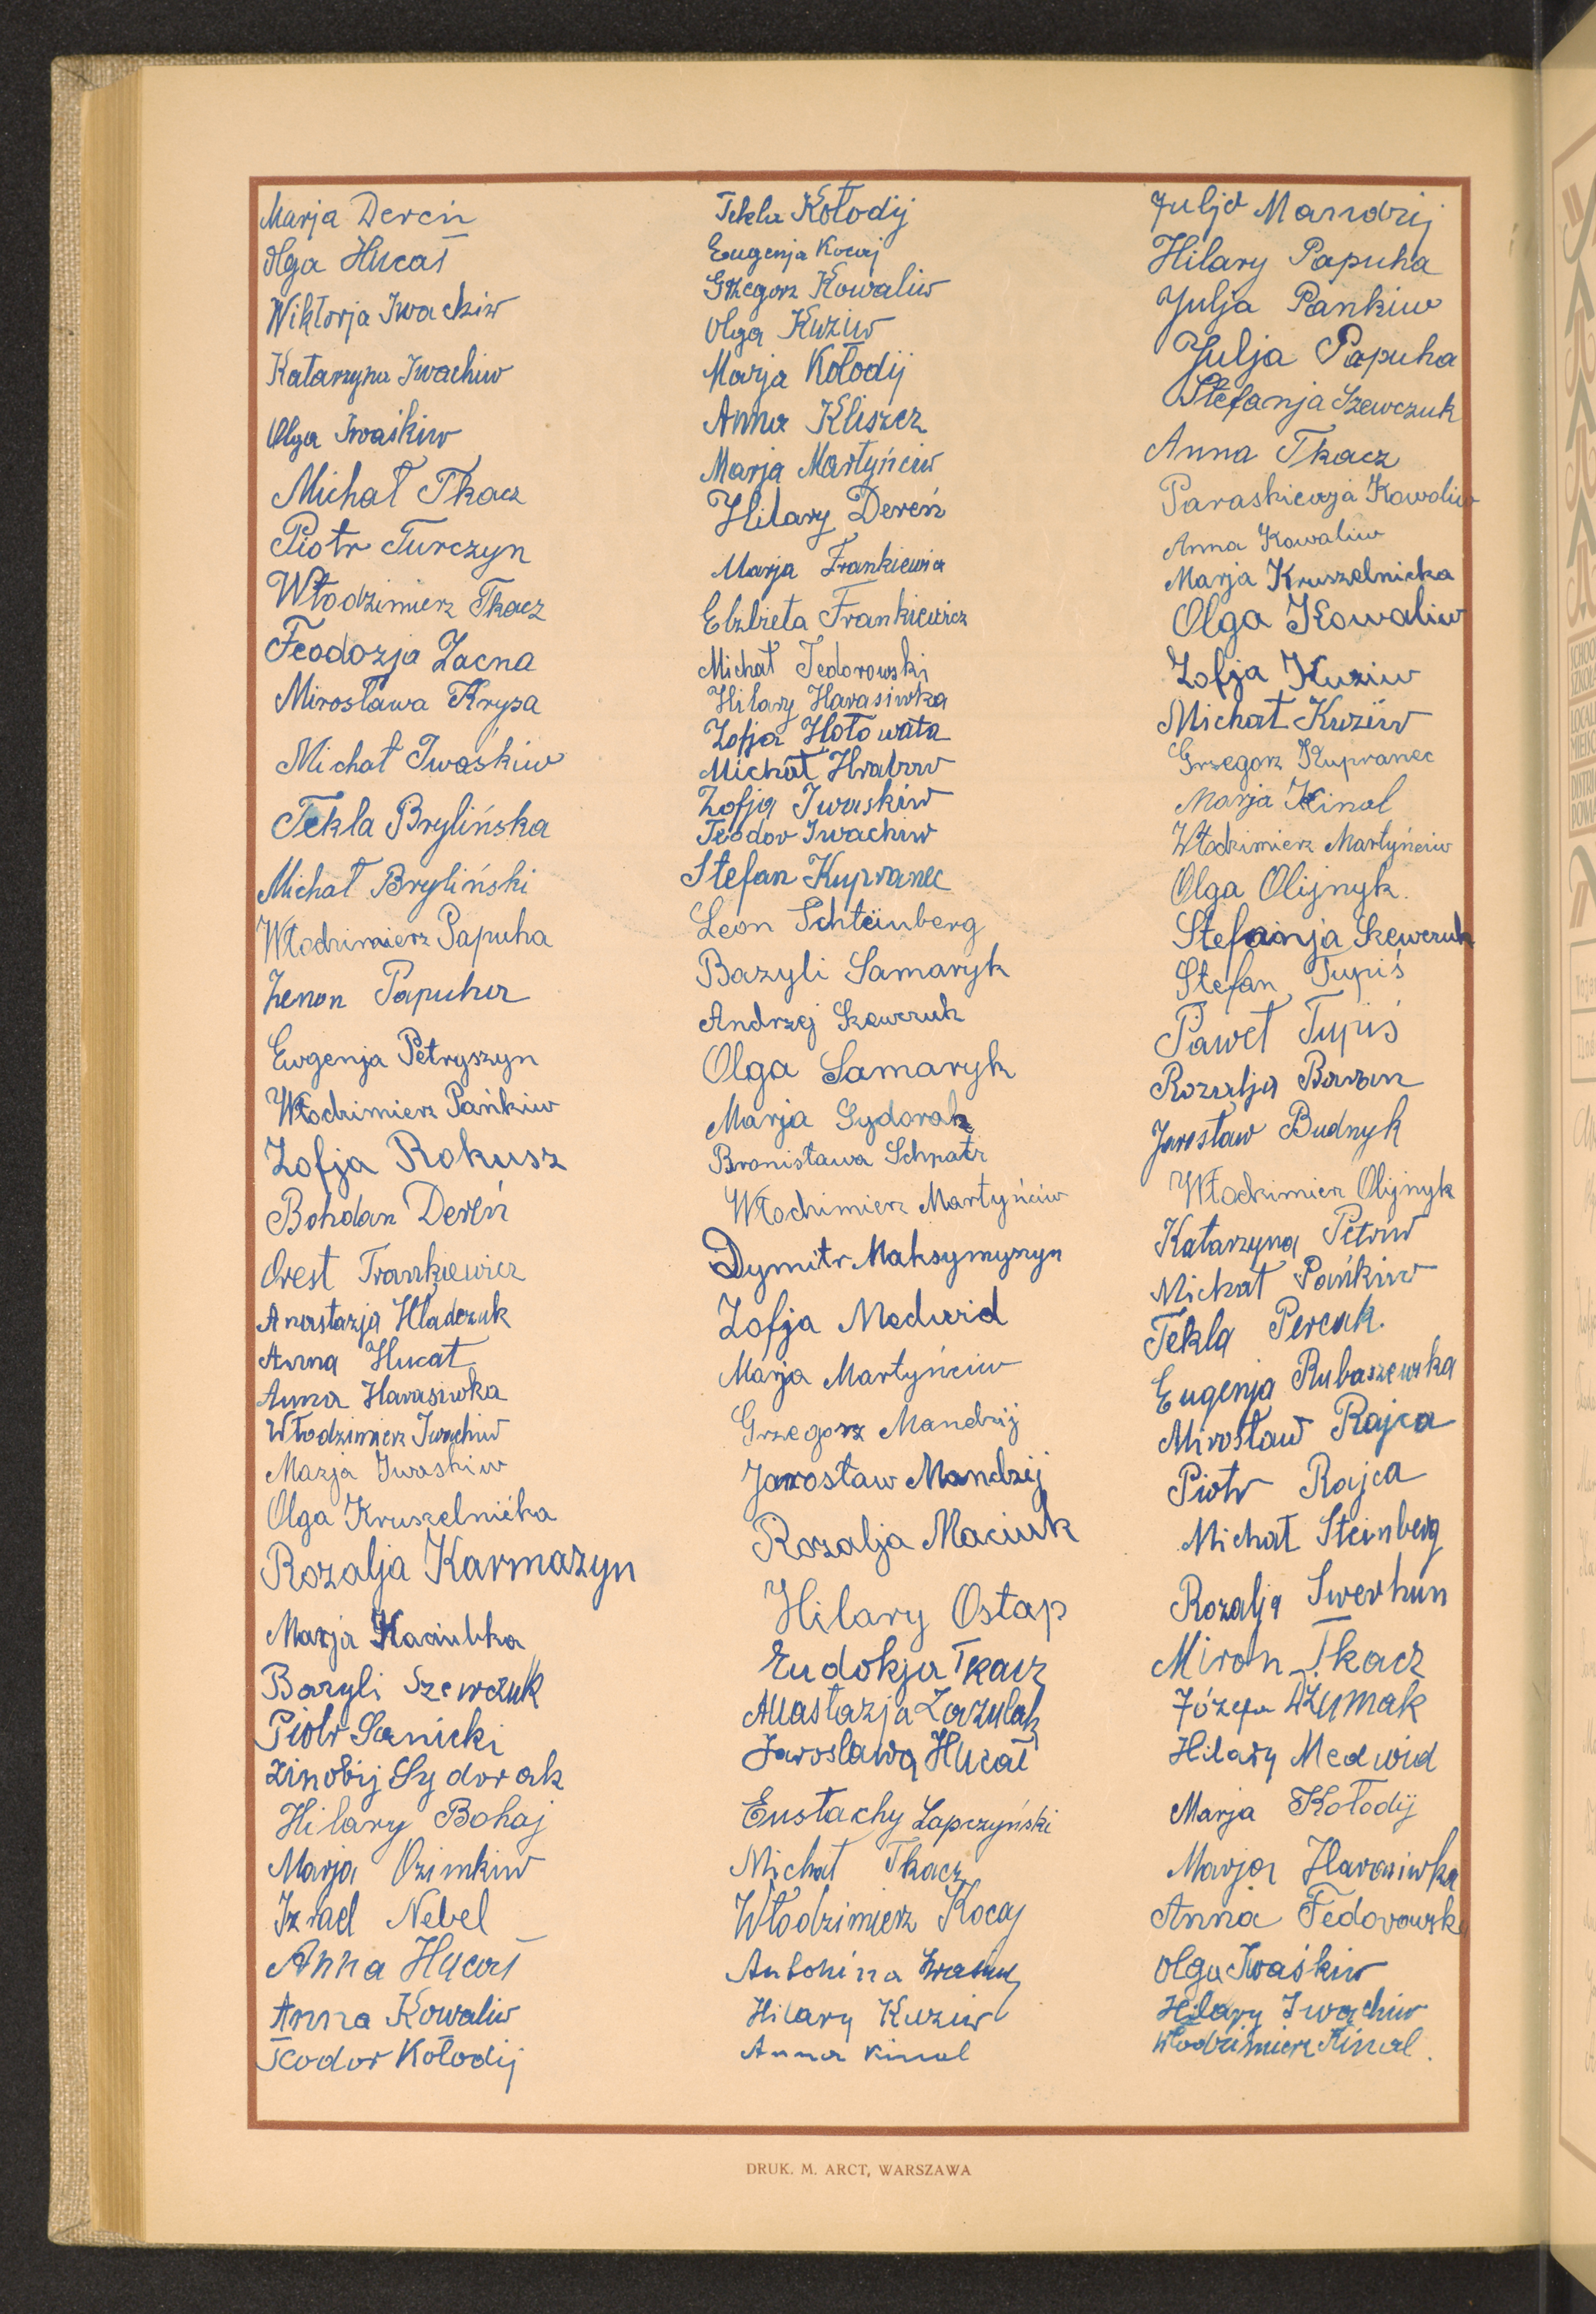 Marja Dereń
Olga Hucał
Wiktorja Iwachiw
Katarzyna Iwachiw
Olga Iwaśkiw
Michał Tkacz
Piotr Turczyn
Włodzimierz Tkacz
Feodozja Zacna
Mirosława Krysa
Michał Iwaśkiw
Tekla Brylińska
Michał Bryliński
Włodzimierz Papuha
Zenon Papuha
Eugenja Petryszyn
Włodzimierz Pańkiw
Zofja Rokusz
Bohdan Dereń
Orest Frankiewicz
Anastazja Hładczuk
Anna Hucał
Anna Harasiwka
Włodzimierz Iwachiw
Marja Iwaskiw
Olga Kruszelnićka
Rozalja Karmazyn
Marja Kaciubka
Bazyli Szewczuk
Piotr Sanicki
Zinobij Sydorak
Hilary Bohaj
Marja Ozimkiw
Izrael Nebel
Anna Hucał
Anna Kowaliw
Teodor Kołodij
Tekla Kołodij
Eugenja Kocaj
Grzegorz Kowaliw
Olga Kuziw
Marja Kołodij
Anna Kliszcz
Marja Martyńciw
Hilary Dereń
Marja Frankiewicz
Elżbieta Frankiewicz
Michał Fedorowski
Hilary Harasiwka
Zofja Hołowata
Michał Hrabow
Zofja Iwaskiw
Teodor Iwachiw
Stefan Kupranec
Leon Schteinberg
Bazyli Samaryk
Andrzej Szewczuk
Olga Samaryk
Marja Sydorak
Bronisława Schpatz
Włodzimierz Martyńciw
Dymitr Maksymyszyn
Zofja Medwid
Marja Martyńciw
Grzegorz Mandzij
Jarosław Mandzij
Rozalja Maciuk
Hilary Ostap
Eudokja Tkacz
Anastazja Zazulak
Jarosława Hucał
Eustachy Łapczyński
Michał Tkacz
Włodzimierz Kocaj
Antonina
Hilary Kuziw
Anna Kinal
Julja Mandzij
Hilary Papuha
Julja Pankiw
Julja Papuha
Stefanja Szewczuk
Anna Tkacz
Paraskiewja Kowaliw
Anna Kowaliw
Marja Kruszelnicka
Olga Kowaliw
Zofja Kuziw
Michał Kuziw
Grzegorz Kupranec
Marja Kinal
Włodzimierz Martyńciw
Olga Olijnyk.
Stefanja Szewczuk
Stefan Tupiś
Paweł Tupiś
Rozalja Baran
Jarosław Budnyk
Włodzimierz Olijnyk
Katarzyna Petriw
Michał Pańkiw
Tekla Percak.
Eugenja Rubaszewska
Mirosław Rajca
Piotr Rajca
Michał Steinberg
Rozalja Swerhun
Miron Tkacz
Józefa Dżumak
Hilary Medwid
Marja Kołodij
Marja Harasiwka
Anna Fedorowska
Olga Iwaśkiw
Hilary Iwachiw
Włodzimierz Kinal.
DRUK. M. ARCT, WARSZAWA